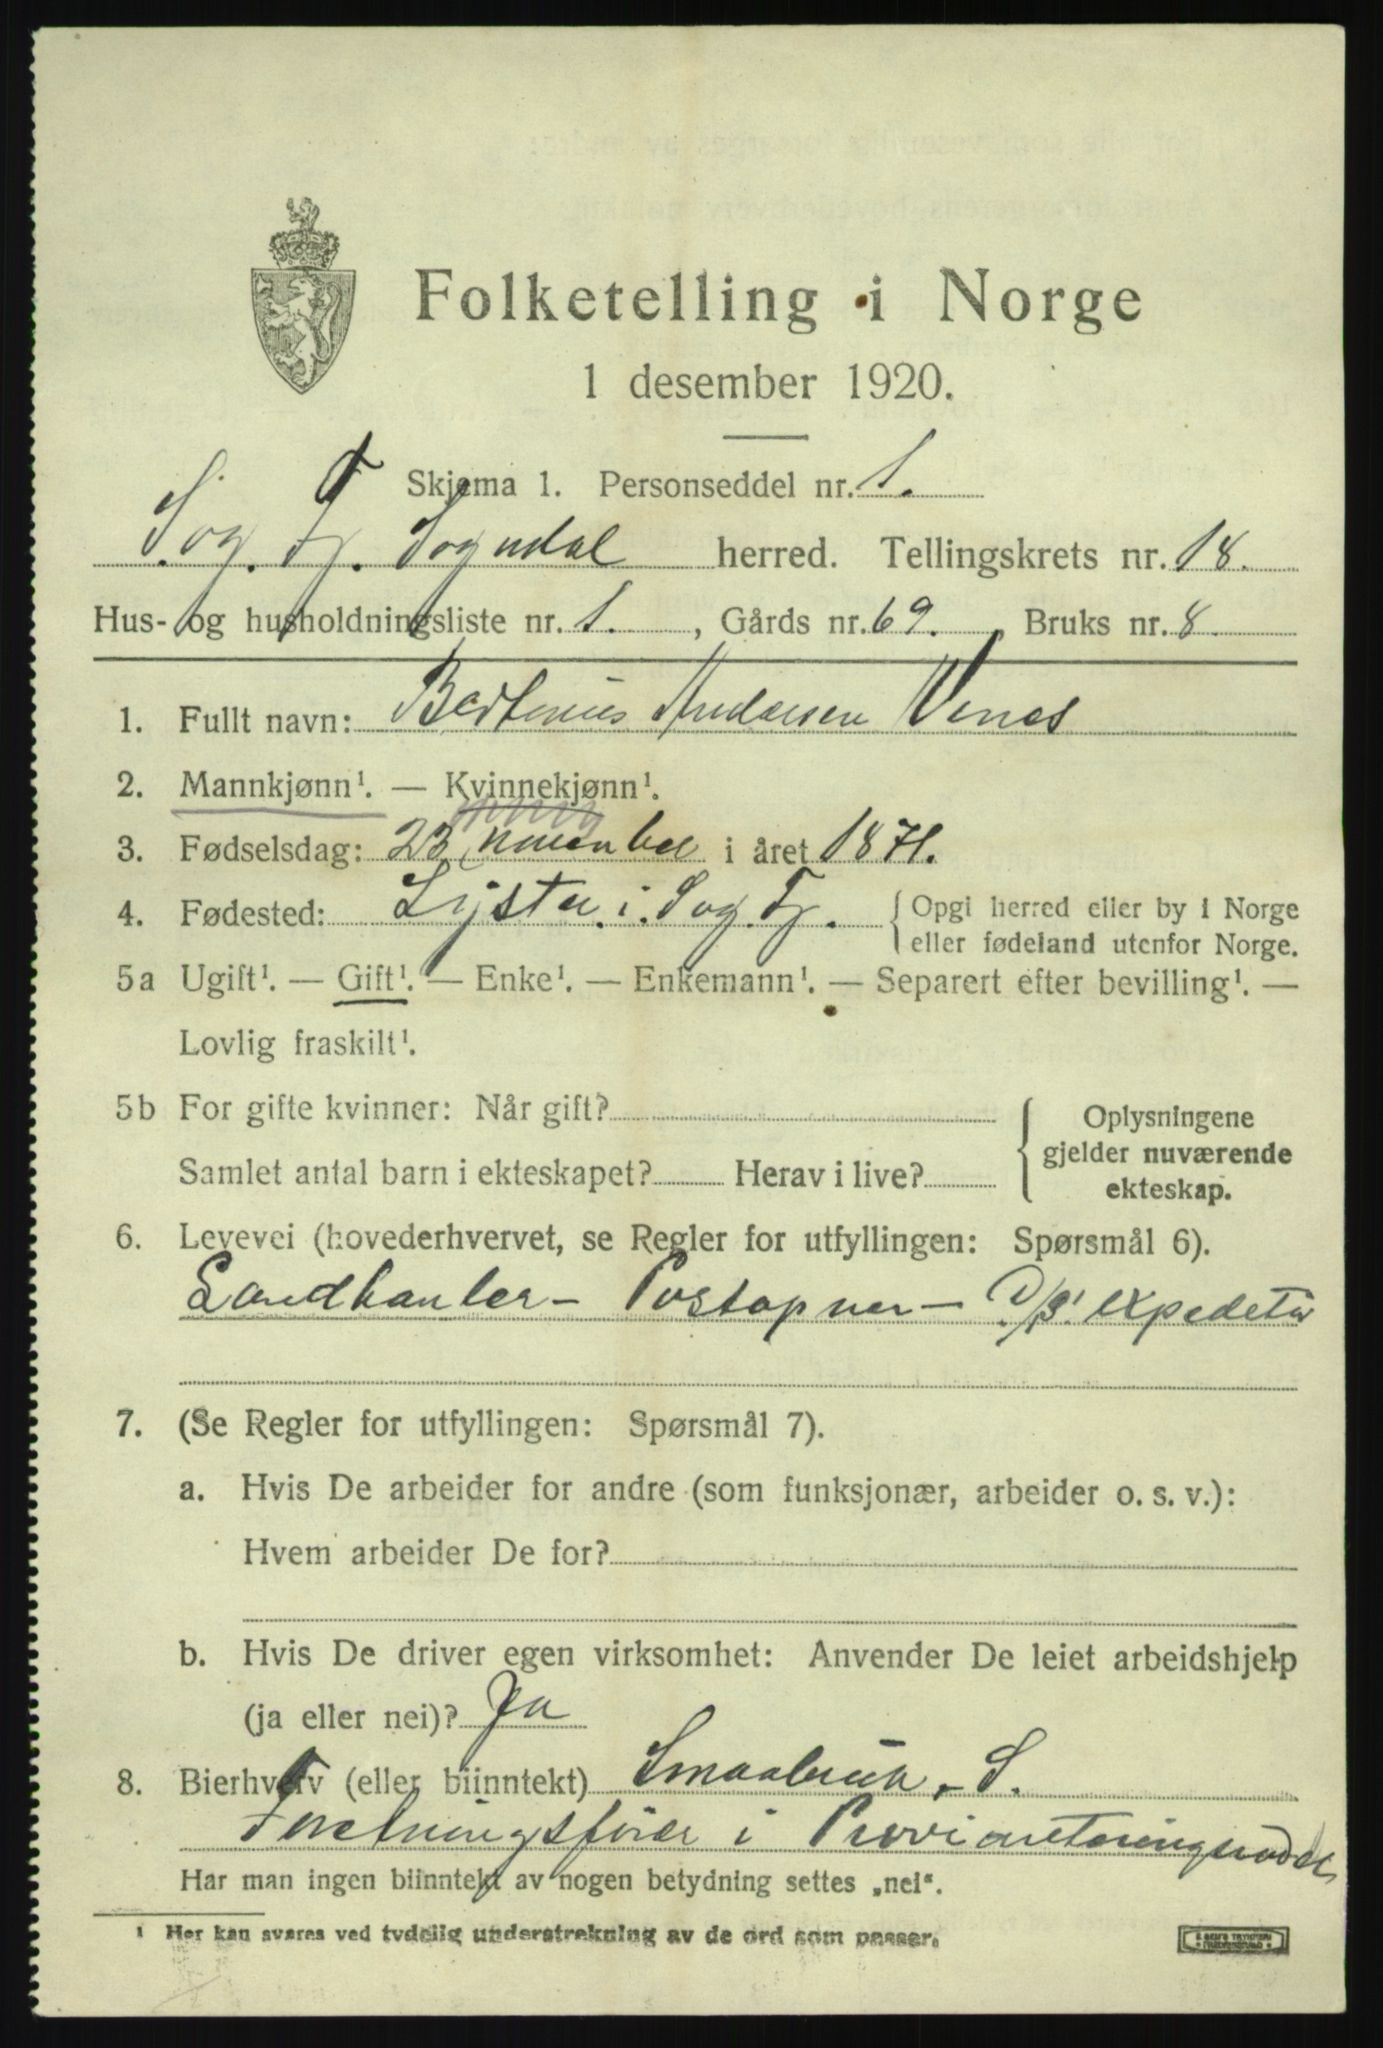 Folketelling i Norge
1 desember 1920.
Skjema 1. Personseddel nr. 1.
Sog. Fj. Sogndal herred. Tellingskrets nr. 18.
Hus- og husholdningsliste nr. 1., Gårds nr. 69., Bruks nr. 8
1. Fullt navn: Bertinius Andersen Venes
2. Mannkjønn¹. — Kvinnekjønn¹.
3. Fødselsdag: 23 november i året 1871.
4. Fødested: Lyster i Sog. Fj. { Opgi herred eller by i Norge
eller fødeland utenfor Norge.
5a Ugift¹. — Gift¹. — Enke¹. — Enkemann¹. — Separert efter bevilling¹. —
Lovlig fraskilt¹.
5b For gifte kvinner: Når gift?
Samlet antal barn i ekteskapet? Herav i live?
{ Oplysningene
gjelder nuværende
ekteskap.
6. Levevei (hovederhvervet, se Regler for utfyllingen: Spørsmål 6).
Landhanler - Postopner - D/S' expeditør
7. (Se Regler for utfyllingen: Spørsmål 7).
a. Hvis De arbeider for andre (som funksjonær, arbeider o. s. v.):
Hvem arbeider De for?
b. Hvis De driver egen virksomhet: Anvender De leiet arbeidshjelp
(ja eller nei)? Ja
8. Bierhverv (eller biinntekt) Smaabruk, S.
Foretningsfører i Provianteringsraadet
Har man ingen biinntekt av nogen betydning settes „nei“.
¹ Her kan svares ved tydelig understrekning av de ord som passer.